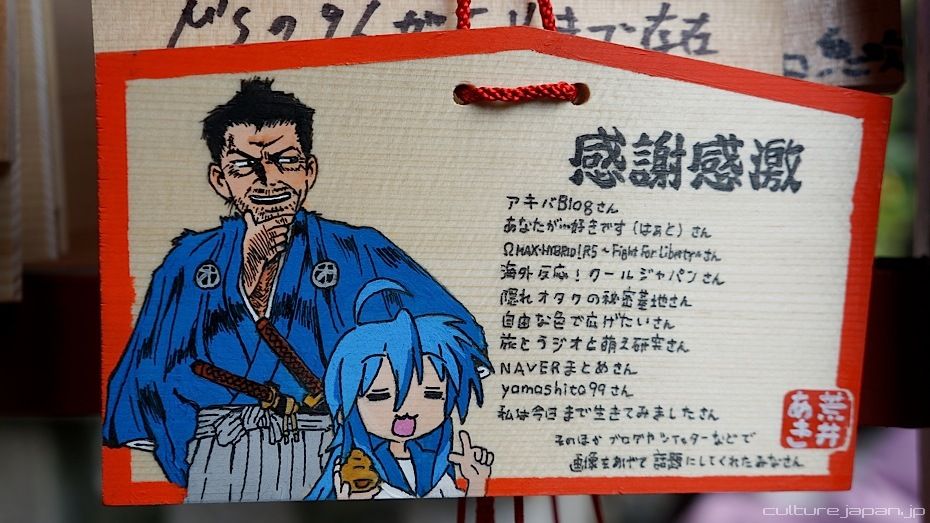 感謝感激
アキバBlogさん
あなたが…好きです(はぁと)さん
ΩMAX-HYBRID[R5～Fight For Liberty～さん
海外反応!クールジャパンさん
隠れオタクの秘密基地さん
自由な色で広げたいさん
旅とラジオと萌え研究さん
NAVERまとめさん
yamashita99さん
私は今日まで生きてみましたさん
そのほか ブログや ツイッターなどで
画像をあげて 話題にしてくれたみなさん
荒井
あき
culturejapan.jp